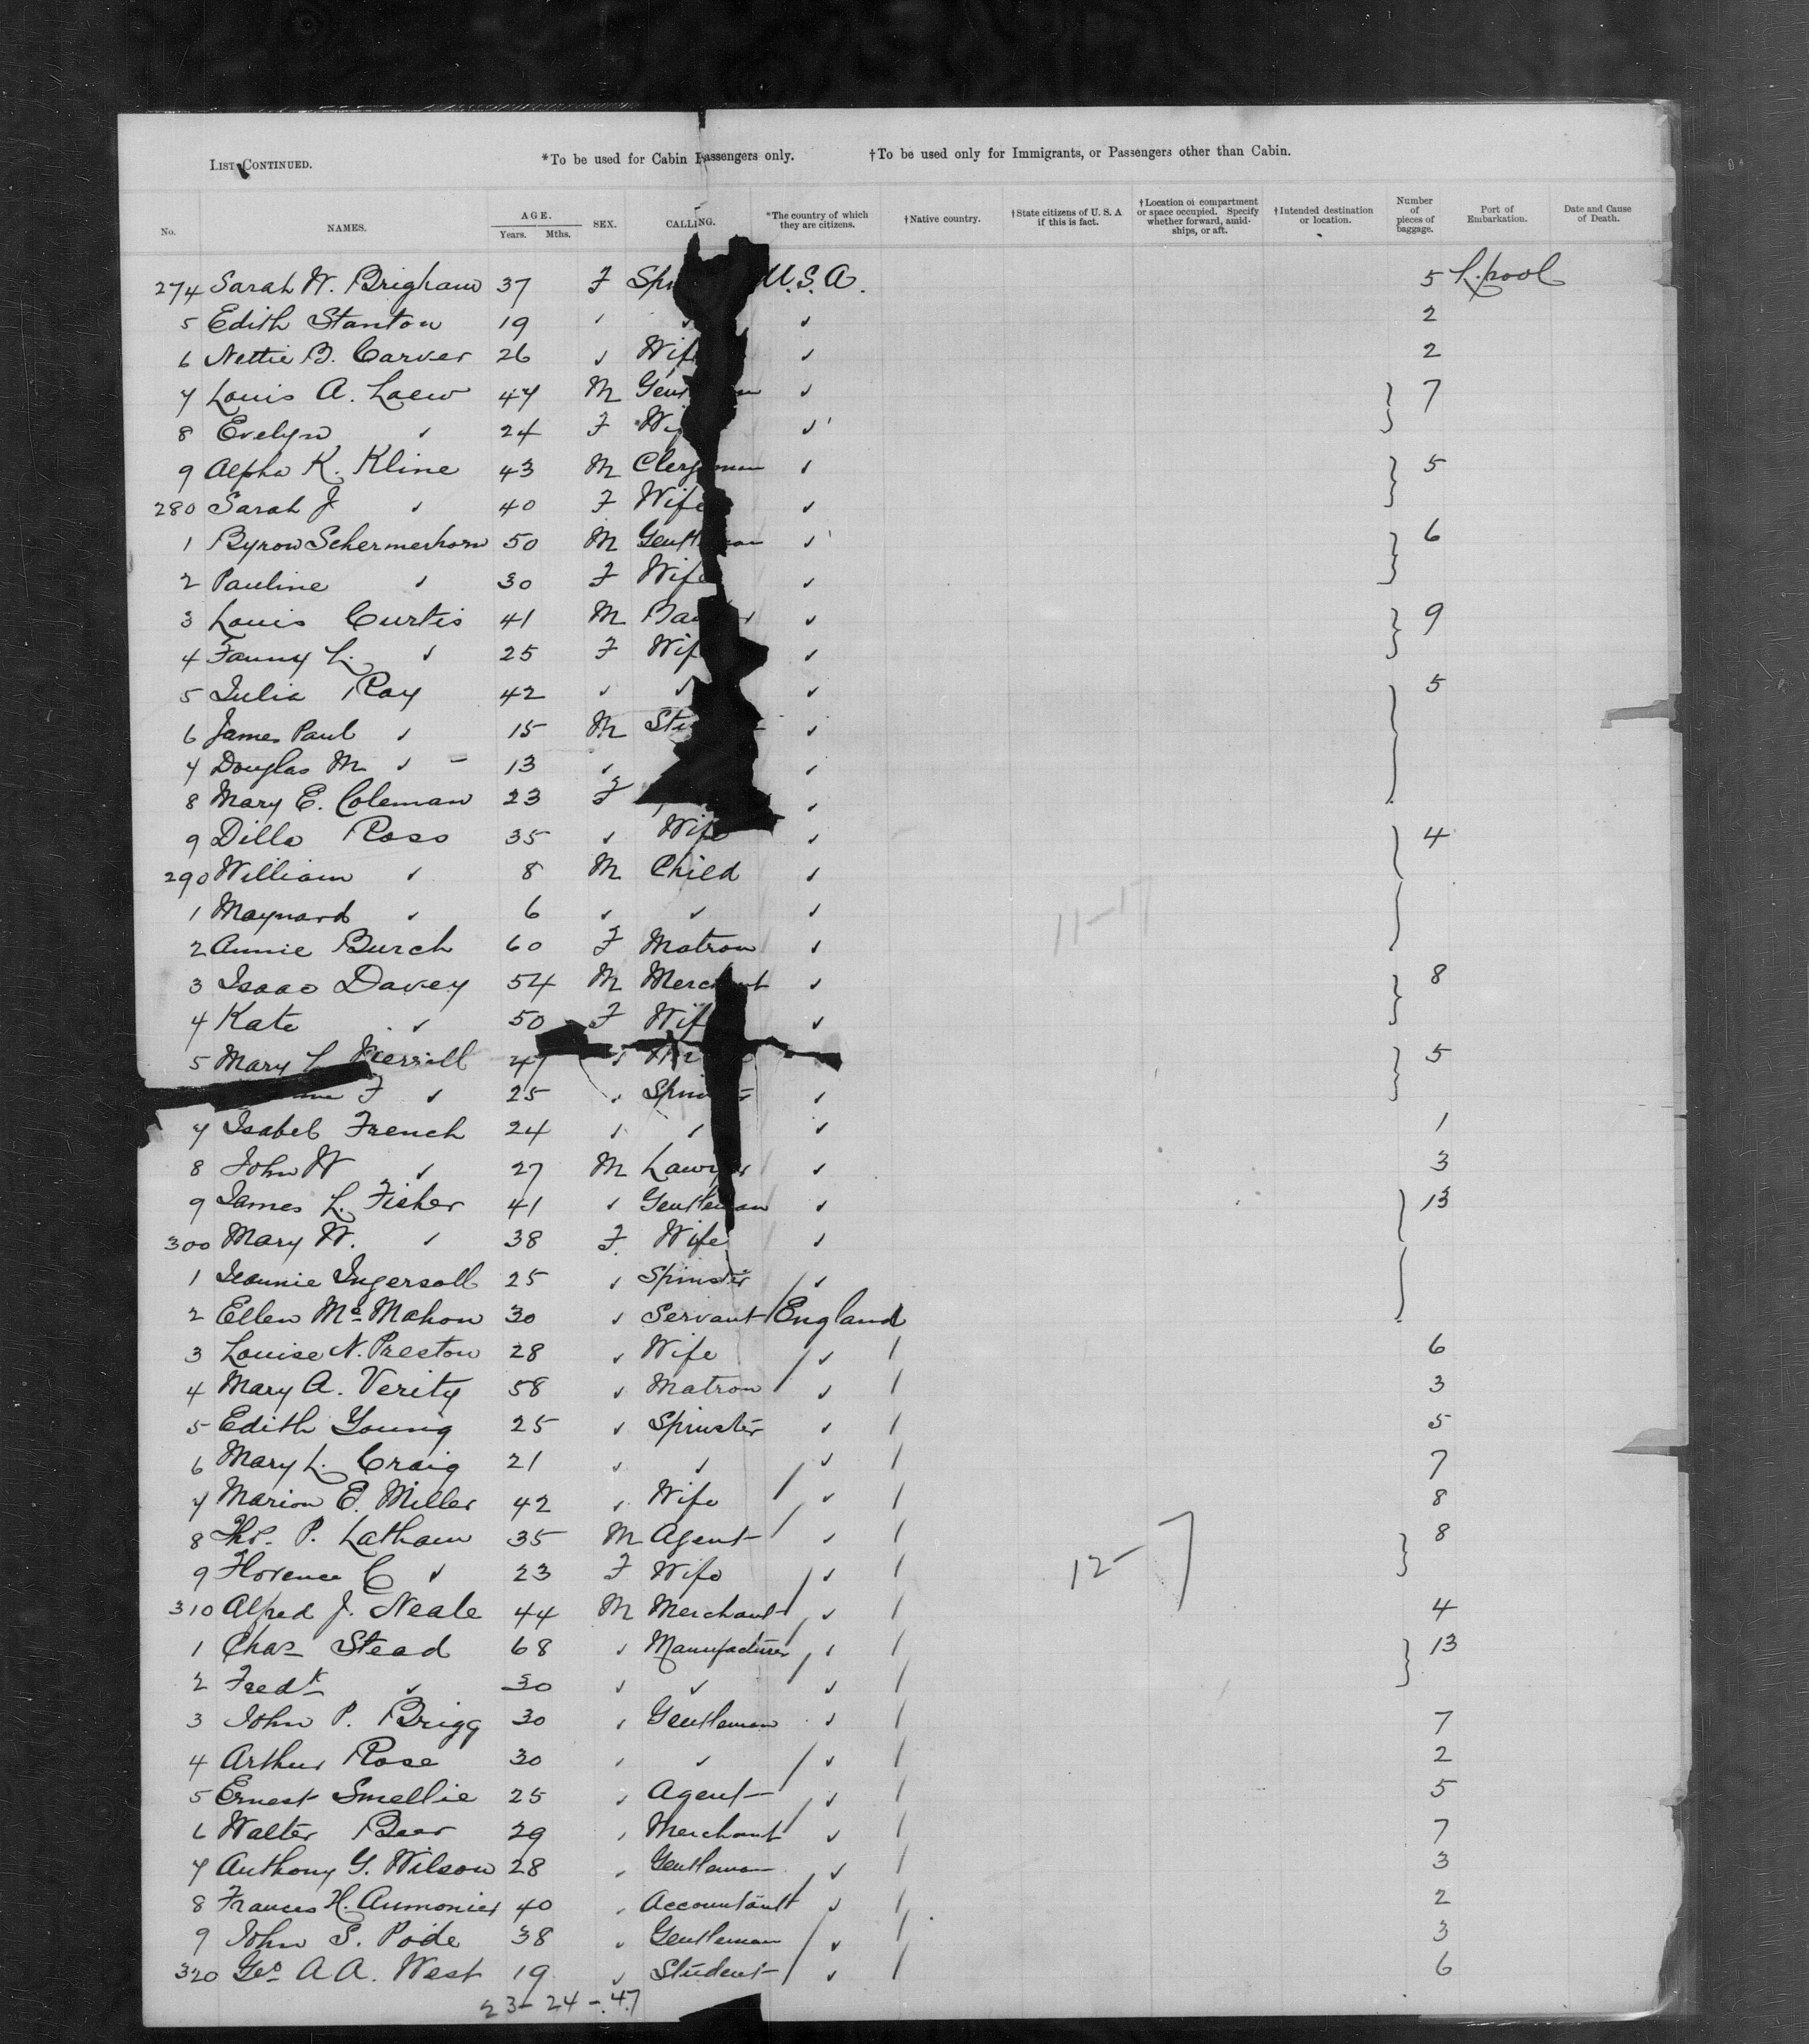 List Continued. *To be used for Cabin Passengers only. †To be used only for Immigrants, or Passengers other than Cabin.
No. NAMES. AGE. Years. Mths. SEX. CALLING. *The country of which they are citizens. †Native country. †State citizens of U. S. A if this is fact. †Location of compartment or space occupied. Specify whether forward, amidships, or aft. †Intended destination or location. Number of pieces of baggage. Port of Embarkation. Date and Cause of Death.
274 Sarah W. Brigham 37 F U.S.A. 5 L.pool
5 Edith Stanton 19 ✓ ✓ ✓ 2
6 Nettie B. Carver 26 ✓ Wife ✓ 2
7 Louis A. Loew 47 M ✓ } 7
8 Evelyn ✓ 24 F ✓
9 Alpha K. Kline 43 M ✓ } 5
280 Sarah J ✓ 40 F Wife ✓
1 Byron Schermerhorn 50 M ✓ } 6
2 Pauline ✓ 30 F Wife ✓
3 Louis Curtis 41 M ✓ } 9
4 Fanny L. ✓ 25 F Wife ✓
5 Julia Ray 42 ✓ ✓ ✓ } 5
6 James Paul ✓ 15 M ✓
7 Douglas M ✓ - 13 ✓ ✓
8 Mary E. Coleman 23 F ✓
9 Dilla Ross 35 ✓ Wife ✓ } 4
290 William ✓ 8 M Child ✓
1 Maynard ✓ 6 ✓ ✓ ✓ 11-17
2 Annie Burch 60 F Matron ✓
3 Isaac Davey 54 M Merchant ✓ } 8
4 Kate ✓ 50 F Wife ✓
5 Mary L Merrill 47 ✓ } 5
F ✓ 25 ✓ ✓
7 Isabel French 24 ✓ ✓ ✓ 1
8 John W ✓ 27 M Lawyer ✓ 3
9 James L. Fisher 41 ✓ Gentleman ✓ } 13
300 Mary W. ✓ 38 F. Wife ✓
1 Jeannie Ingersoll 25 ✓ Spinster ✓
2 Ellen Mc Mahon 30 ✓ Servant England
3 Louise N. Preston 28 ✓ Wife ✓ / 6
4 Mary A. Verity 58 ✓ Matron ✓ / 3
5 Edith Young 25 ✓ Spinster ✓ / 5
6 Mary L. Craig 21 ✓ ✓ ✓ / 7
7 Marion E. Miller 42 ✓ Wife ✓ / 8
8 Thos. P. Latham 35 M Agent ✓ / } 8
9 Florence C ✓ 23 F Wife ✓ / 12-7
310 Alfred J. Neale 44 M Merchant ✓ / 4
1 Chas Stead 68 ✓ Manufacturer ✓ / } 13
2 Fredk ✓ 30 ✓ ✓ ✓ /
3 John P. Brigg 30 ✓ Gentleman ✓ / 7
4 Arthur Rose 30 ✓ ✓ ✓ / 2
5 Ernest Smellie 25 ✓ Agent ✓ / 5
6 Walter Beer 29 ✓ Merchant ✓ / 7
7 Anthony G. Wilson 28 ✓ Gentleman ✓ / 3
8 Frances H. Aumonier 40 ✓ Accountant ✓ / 2
9 John S. Pode 38 ✓ Gentleman ✓ / 3
320 Geo A A. West 19 ✓ Student ✓ / 6
23-24-47